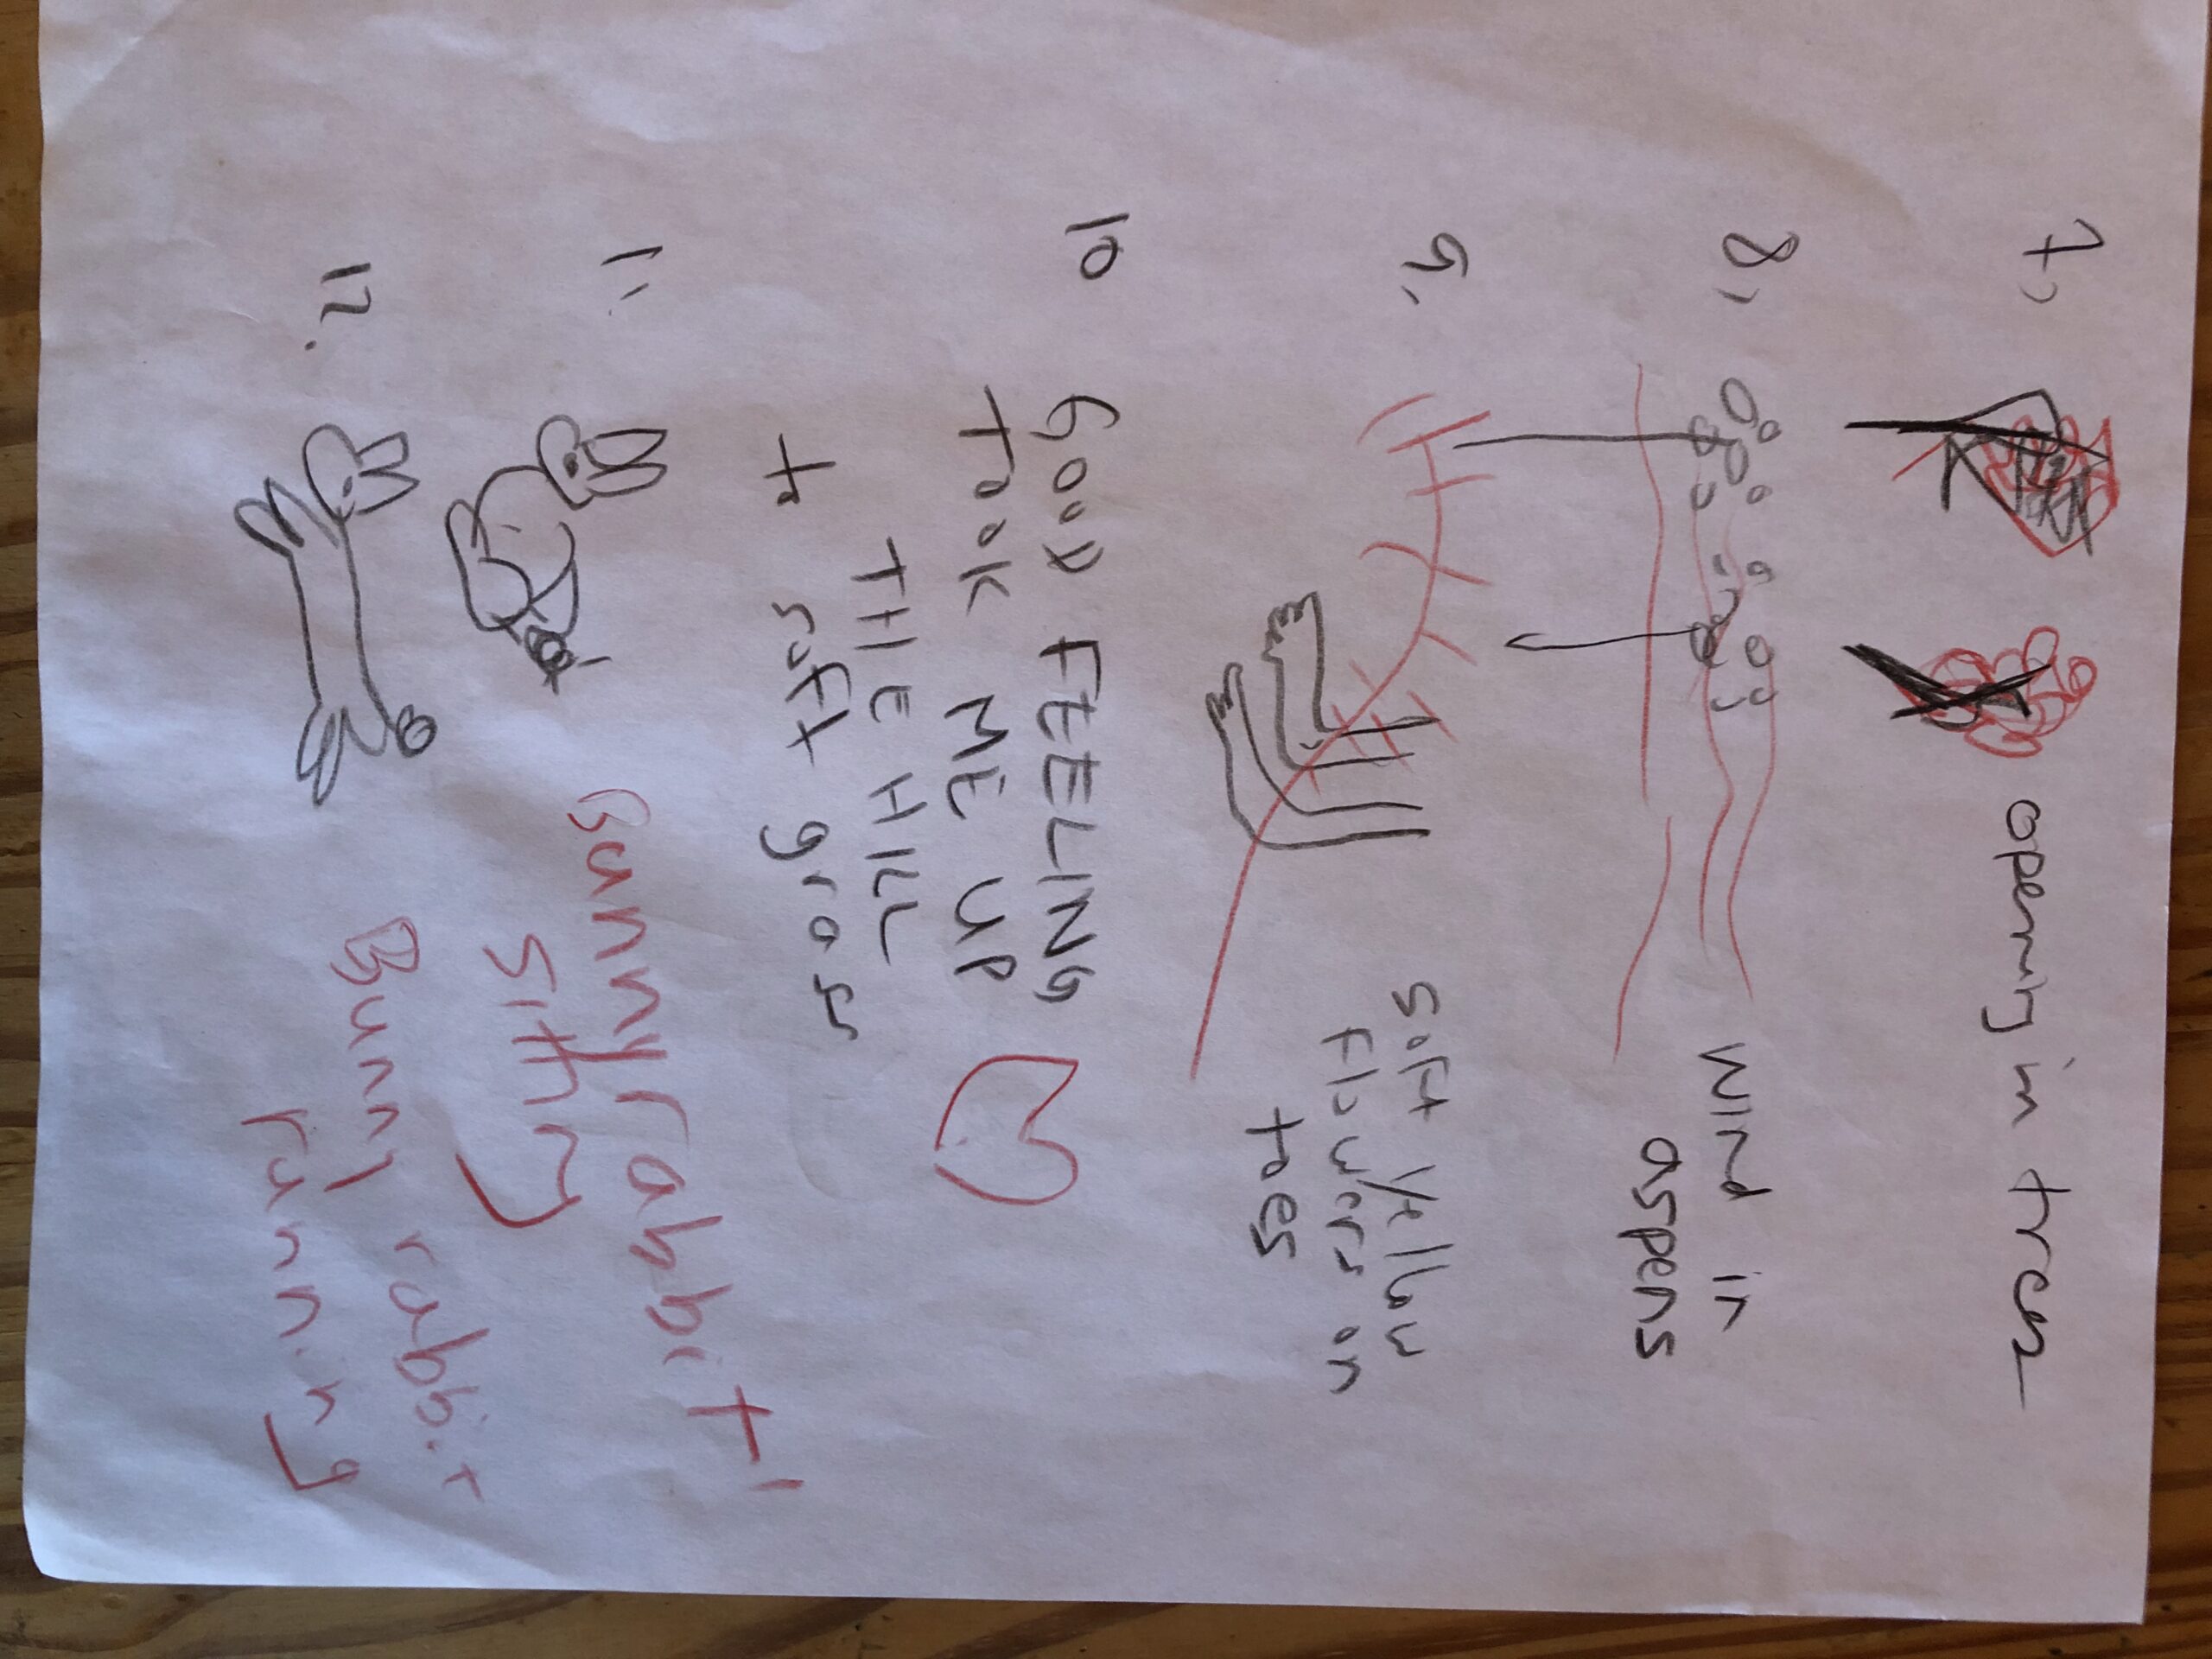 7) opening in trees
8) Wind in
aspens
9. Soft Yellow
Flowers on
toes
10 GOOD FEELING
TOOK ME UP
THE HILL
+ soft grass
11. Bunny rabbit
sitting
12. Bunny rabbit
running